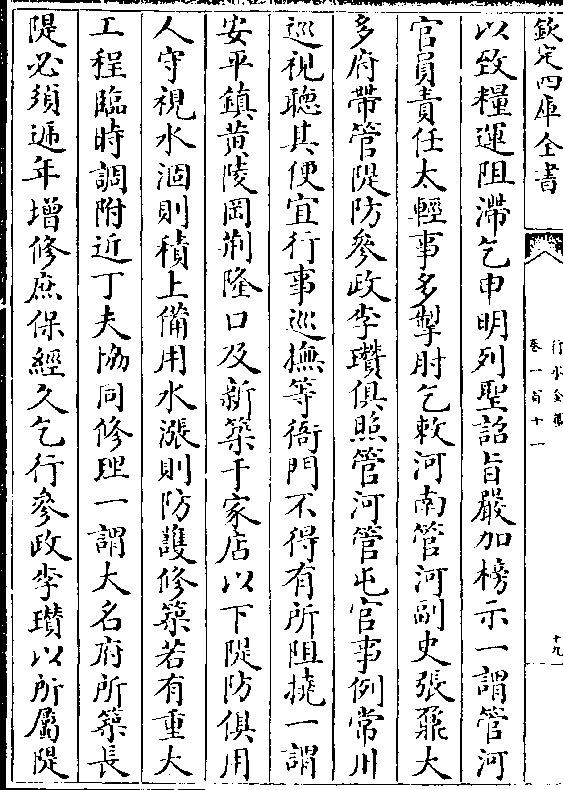 欽定四庫全書
行水金鑑
卷一百十一
十九
以致糧運阻滯乞申明列聖詔旨嚴加榜示一謂管河
官員責任太輕事多掣肘乞敕河南管河副史張鼐大
多府帶管隄防參政李瓚俱照管河管屯官事例常川
巡視聽其便宜行事巡撫等衙門不得有所阻撓一謂
安平鎮黄陵岡荊隆口及新築于家店以下隄防俱用
人守視水涸則積土備用水漲則防護修築若有重大
工程臨時調附近丁夫協同修理一謂大名府所築長
隄必須遞年增修庶保經久乞行參政李瓚以所屬隄